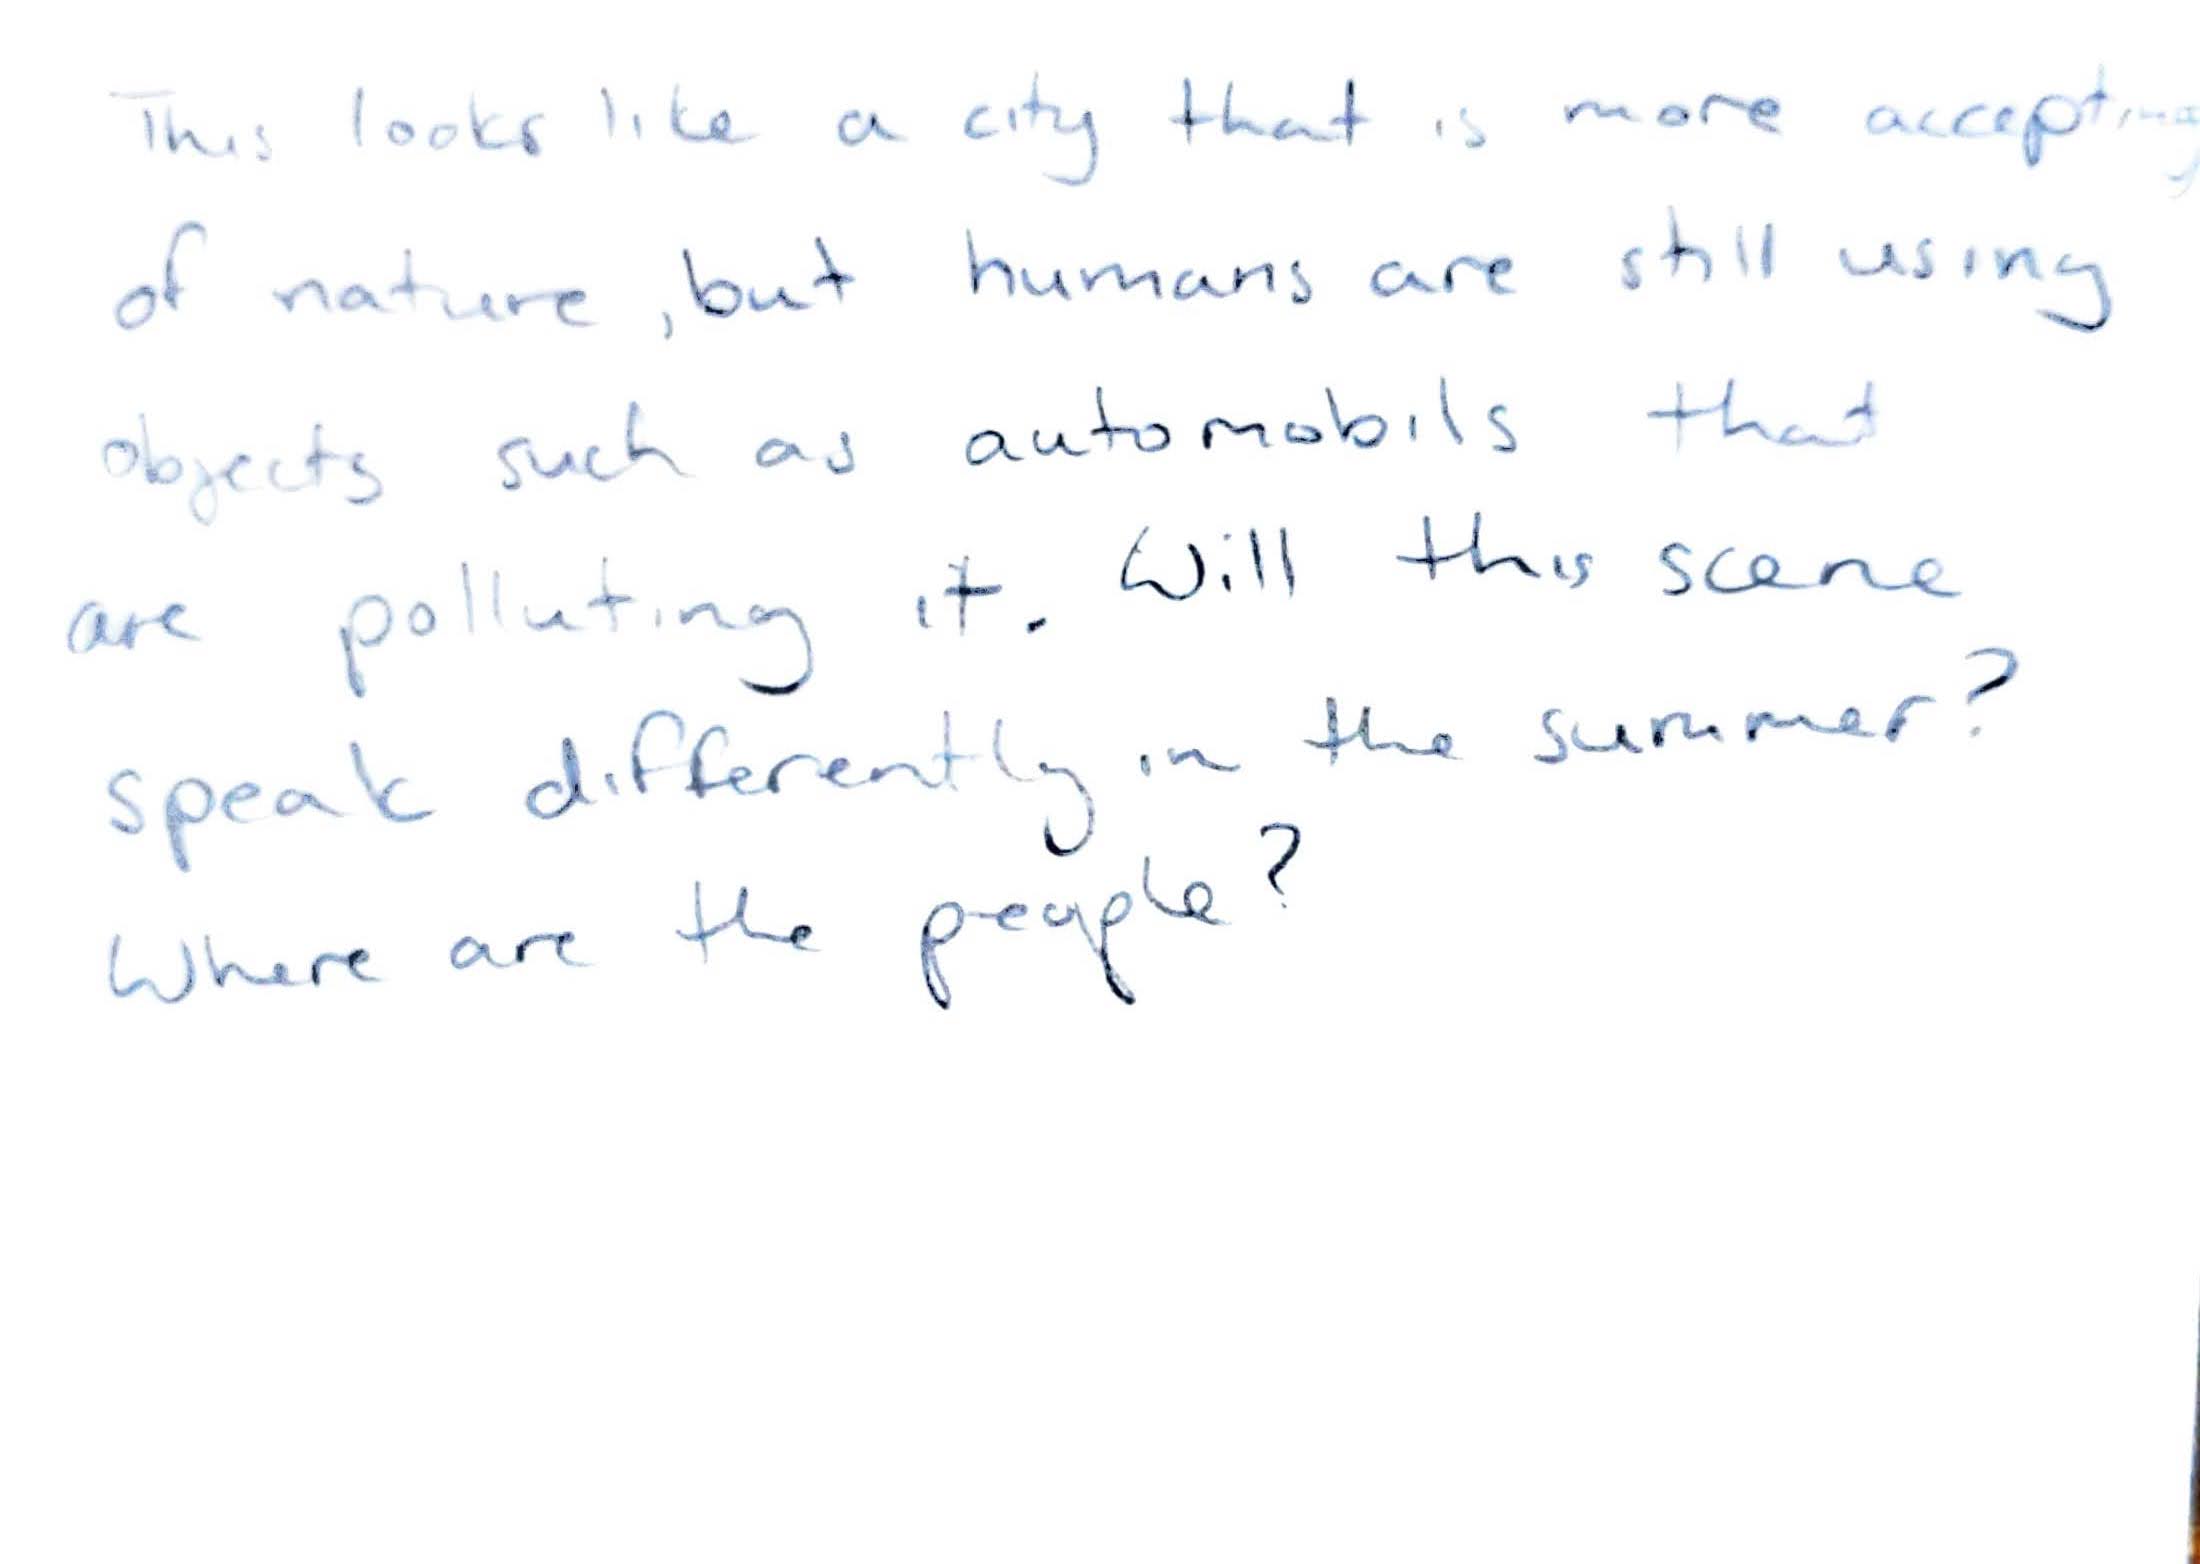 This looks like a city that is more accepting
of nature, but humans are still using
objects such as automobils that
are polluting it. Will this scene
speak differently in the summer?
Where are the people?